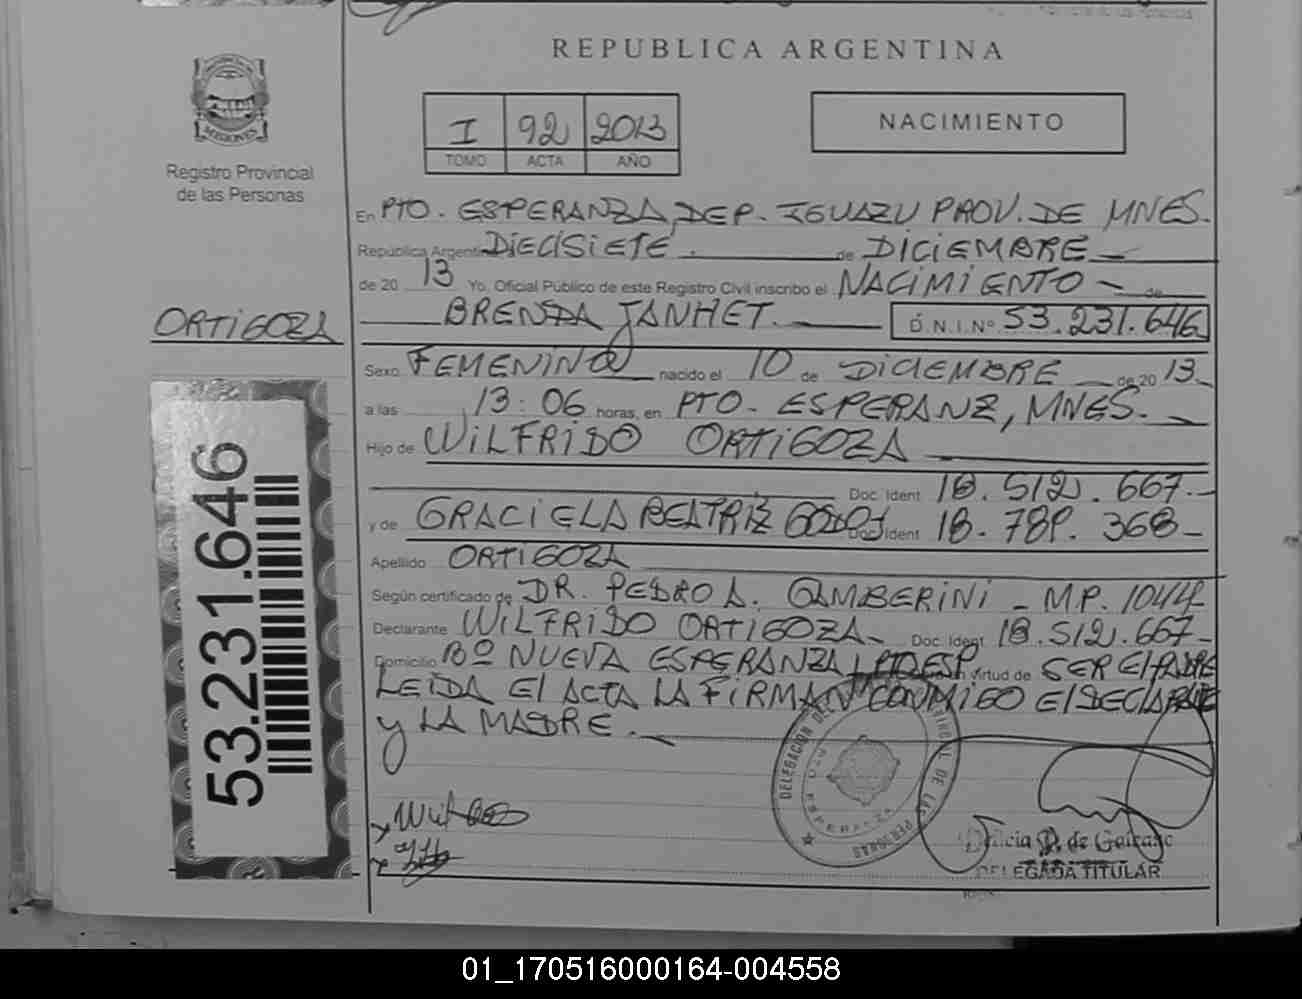 REPUBLICA ARGENTINA
MISIONES
Registro Provincial
de las Personas
I 92 2013
TOMO ACTA AÑO
NACIMIENTO
En PTO. ESPERANZA, DEP. IGUAZU PROV. DE MNES.
República Argentina DIECISIETE. de DICIEMBRE
de 20 13 Yo, Oficial Público de este Registro Civil inscribo el NACIMIENTO de
BRENDA JANHET D.N.I.Nº 53.231.646
ORTIGOZA
Sexo FEMENINO nacido el 10 de DICIEMBRE de 20 13
a las 13:06 horas, en PTO. ESPERANZ, MNES.
Hijo de WILFRIDO ORTIGOZA
Doc. Ident 18.512.667
y de GRACIELA BEATRIZ Doc Ident 18.789.368
Apellido ORTIGOZA
Según certificado de DR. PEDRO A. GAMBERINI - M.P. 1044
Declarante WILFRIDO ORTIGOZA Doc. Ident 18.512.667
Domicilio Bº NUEVA ESPERANZA, PTO ESP. en virtud de SER El PADRE
LEIDA El ACTA LA FIRMAN CONMIGO El DECLARANTE
y LA MADRE.
53.231.646
DELEGACION DEL PROVINCIAL DE LAS PERSONAS
ESPERANZA
DELEGADA TITULAR
01_170516000164-004558